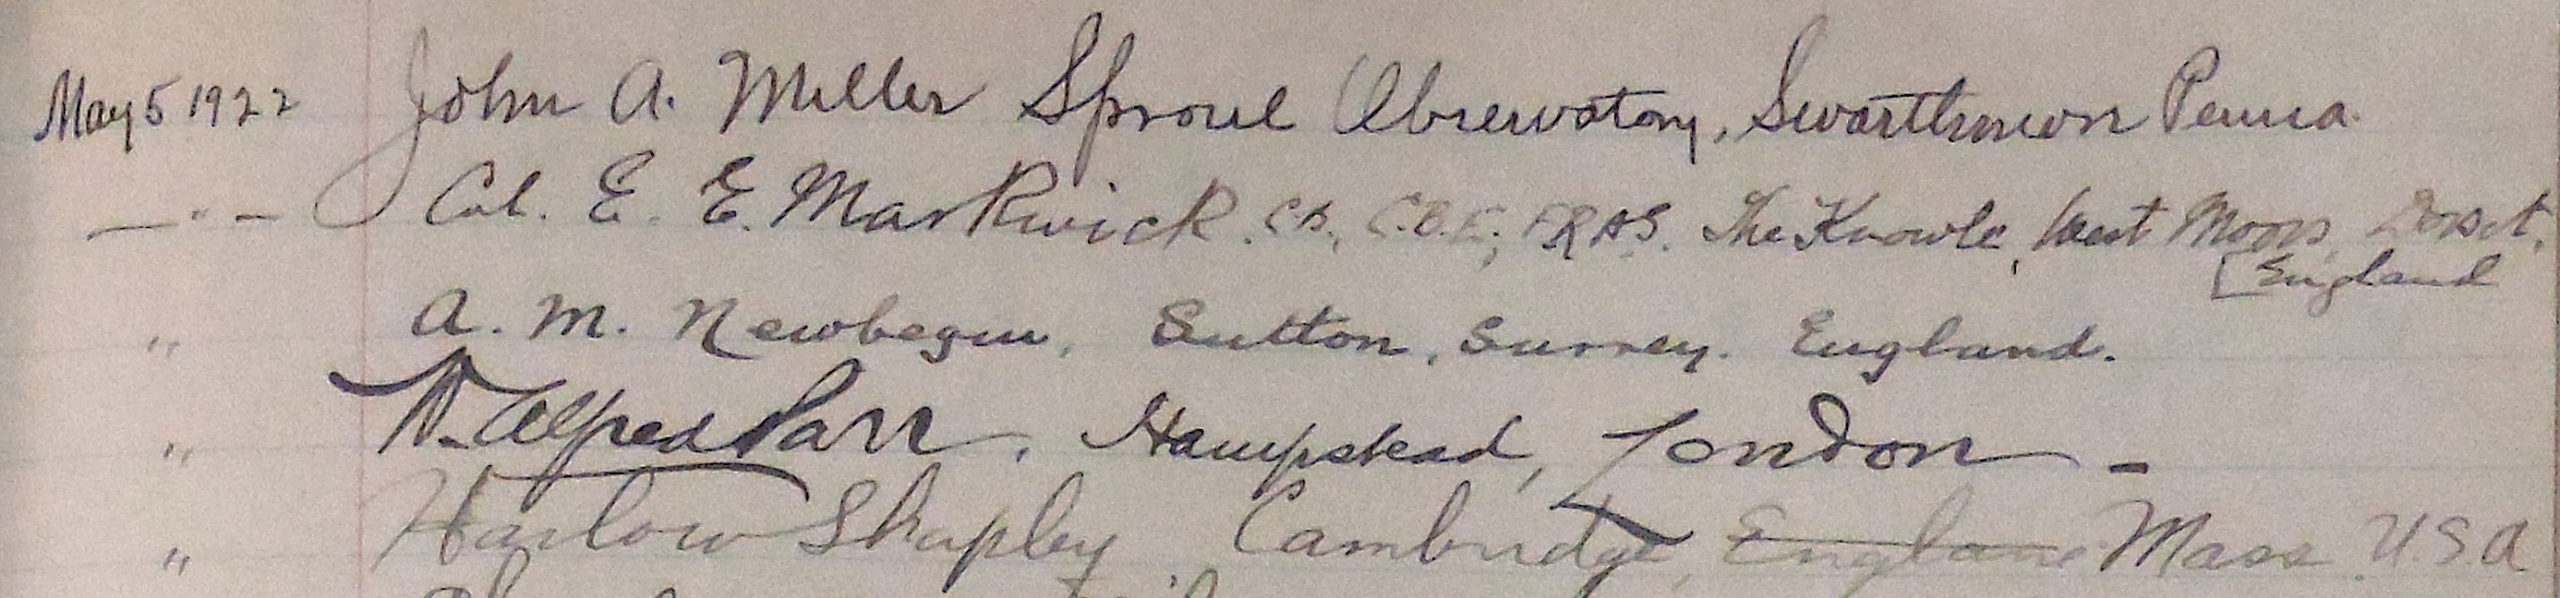 May 5 1922 John A. Miller Sproul Observatory, Swarthmore Penna.
— " — Col. E. E. Markwick. C.B., C.B.E.; F.R.A.S. The Knowle, West Moors, Dorset,
[England
" A. M. Newbegin, Sutton, Surrey. England.
" W. Alfred Parr, Hampstead, London -
" Harlow Shapley, Cambridge, England Mass. U.S.A